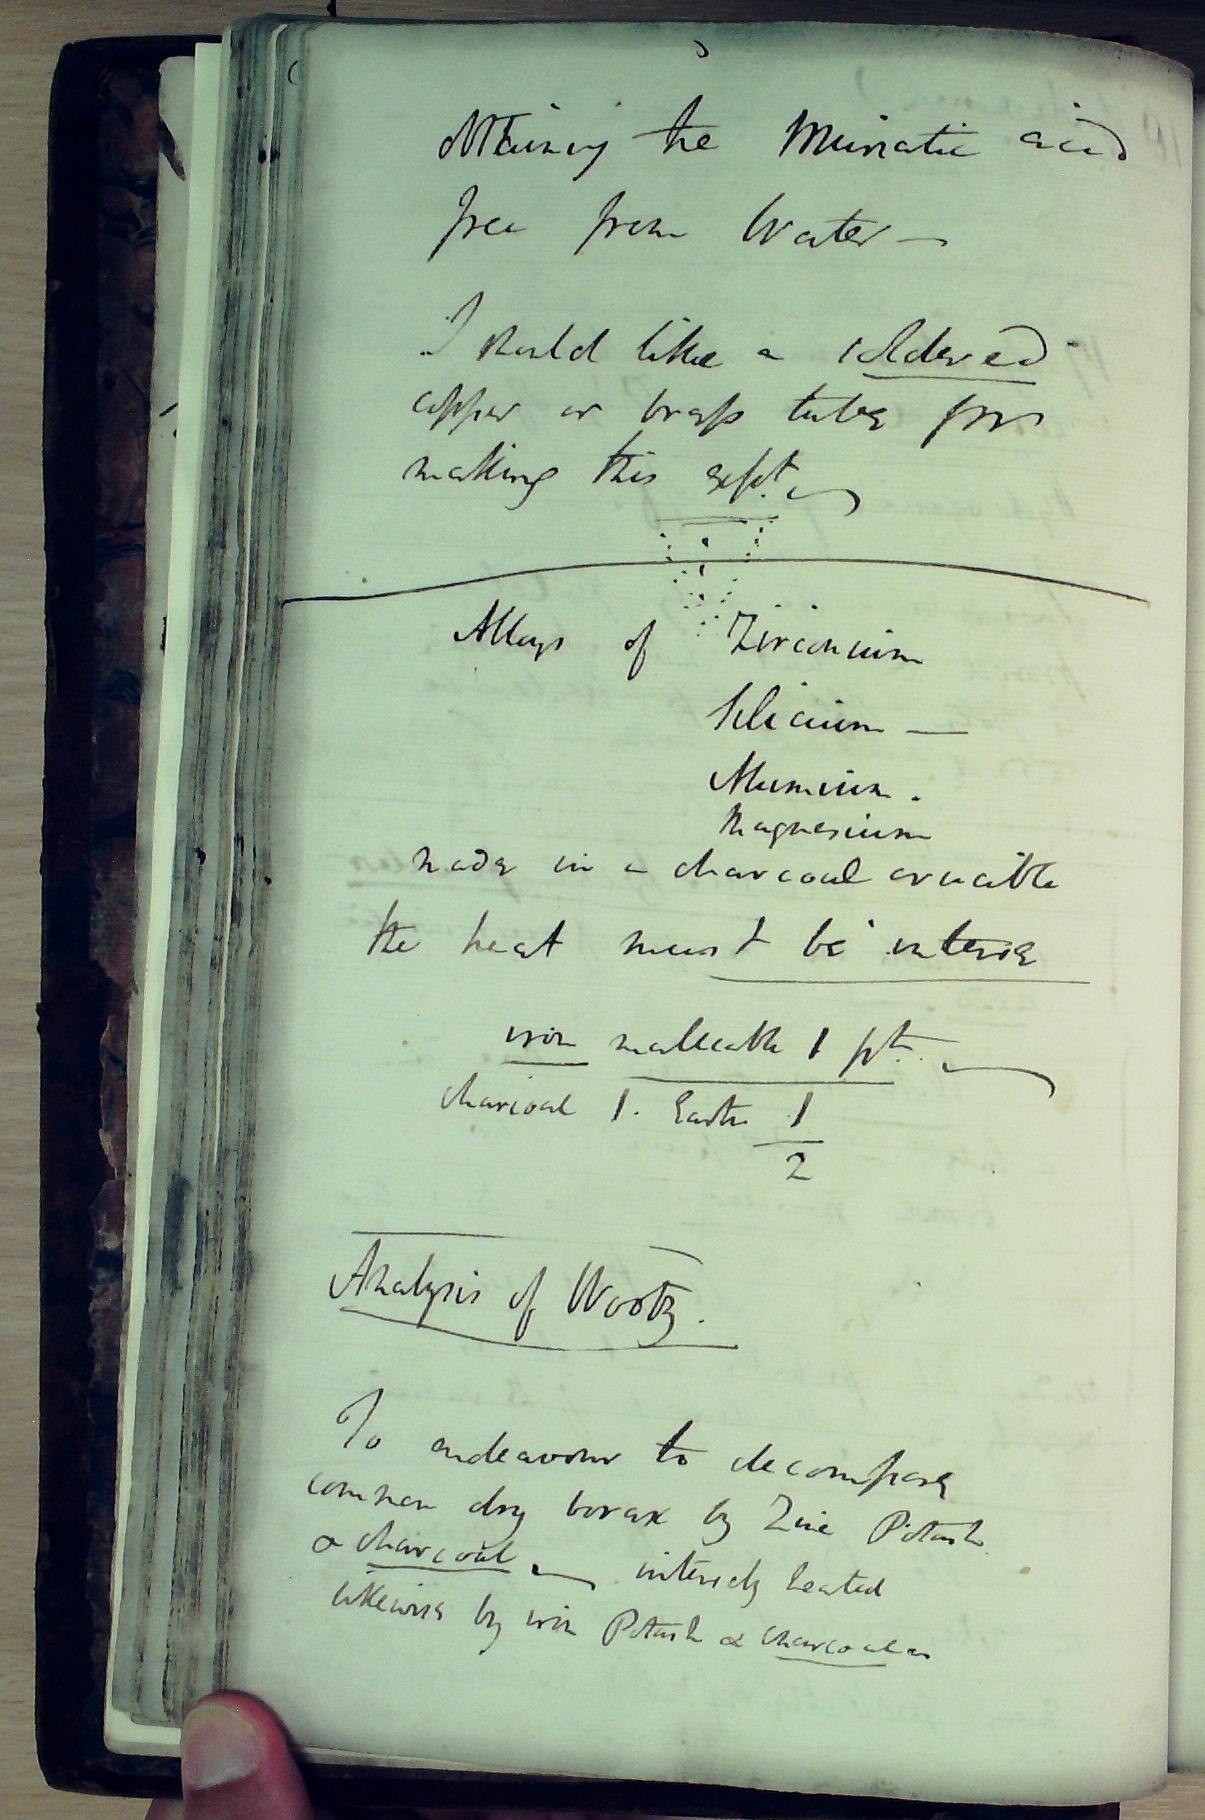 obtaining the Muriatic acid
free from Water —
I should like a soldered
copper or brass tube for
making this expt. —
Alloys of Zirconium
Silicium —
Alumium.
Magnesium
made in a charcoal crucible
the heat must be intense
iron malleable 1 pt. —
charcoal 1. Earth 1
2
Analysis of Wootz.
To endeavour to decompose
common dry borax by Zinc Potash
& charcoal — intensely heated
likewise by iron Potash & charcoal